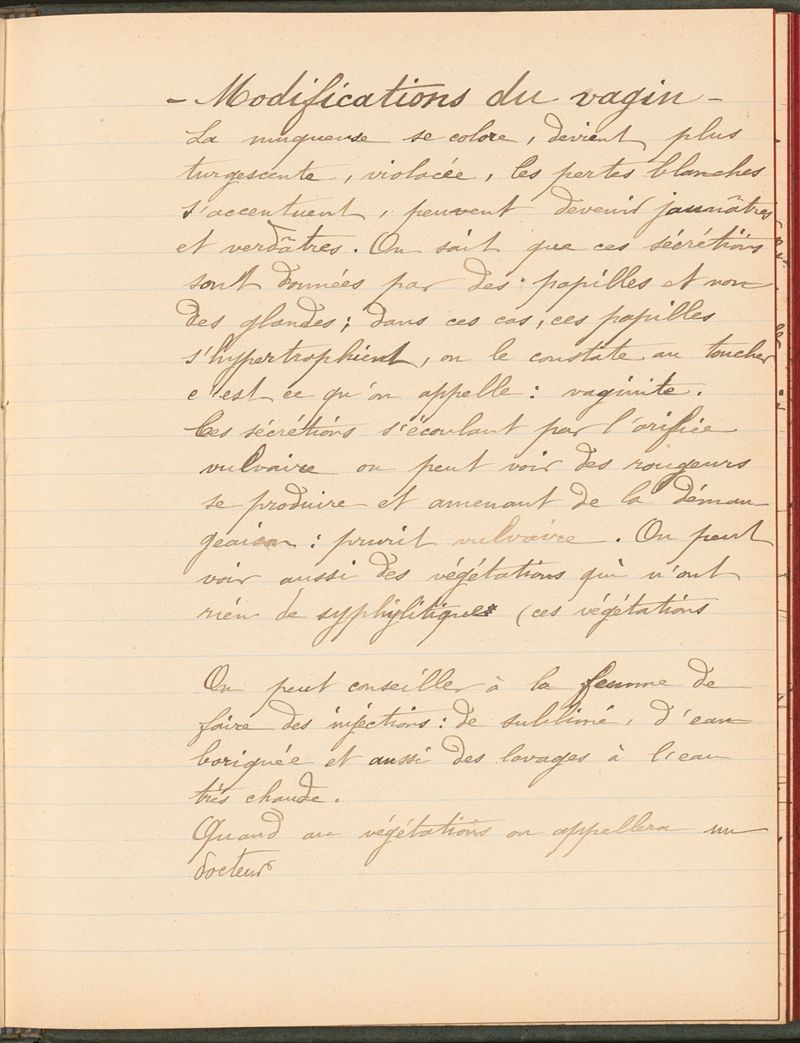 - Modifications du vagin -
La muqueuse se colore, devient plus
turgescente, violacée, les pertes blanches
s'accentuent, peuvent devenir jaunâtres
et verdâtres. On sait que ces sécrétions
sont données par des papilles et non
des glandes; dans ces cas, ces papilles
s'hypertrophient, on le constate au toucher
c'est ce qu'on appelle: vaginite.
Ces sécrétions s'écoulant par l'orifice
vulvaire on peut voir des rougeurs
se produire et amenant de la déman-
geaison: prurit vulvaire. On peut
voir aussi des végétations qui n'ont
rien de syphilitique (ces végétations
On peut conseiller à la femme de
faire des injections: de sublimé, d'eau
boriquée et aussi des lavages à l'eau
très chaude.
Quand au végétations on appellera un
docteur